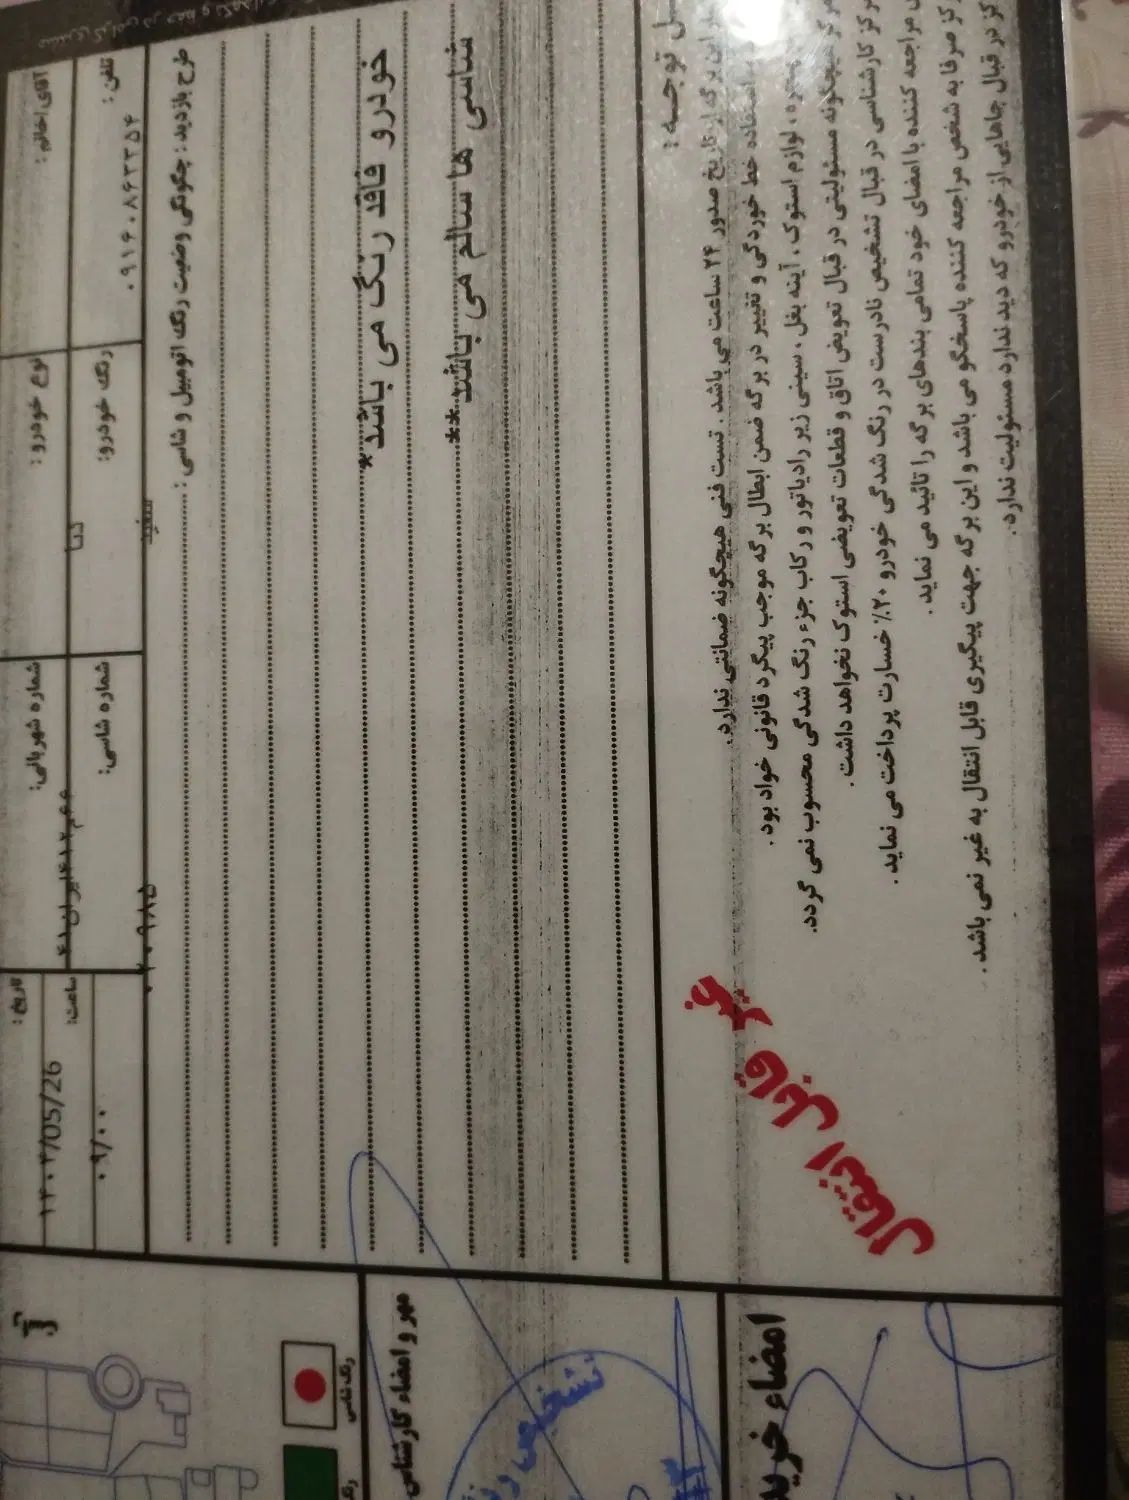 آقای/خانم :
نوع خودرو :
دنا
شماره شهربانی:
تاریخ :
۱۴۰۲/05/26
تلفن :
رنگ خودرو:
سفید
شماره شاسی:
ساعت:
۰۹/۰۰
طرح بازدید : چگونگی وضعیت رنگ اتومبیل و شاسی :
خودرو فاقد رنگ می باشد*
شاسی ها سالم می باشد**
توجه :
تاریخ صدور ۲۴ ساعت می باشد . تست فنی هیچگونه ضمانتی ندارد.
استفاده خط خوردگی و تغییر در برگه ضمن ابطال برگه موجب پیگرد قانونی خواد بود .
لوازم استوک ، آینه بغل ، سینی زیر رادیاتور و رکاب جزء رنگ شدگی محسوب نمی گردد.
هیچگونه مسئولیتی در قبال تعویض اتاق و قطعات تعویضی استوک نخواهد داشت .
کارشناسی در قبال تشخیص نادرست در رنگ شدگی خودرو ۲۰٪ خسارت پرداخت می نماید .
مراجعه کننده با امضای خود تمامی بندهای برگه را تائید می نماید .
صرفا به شخص مراجعه کننده پاسخگو می باشد و این برگه جهت پیگیری قابل انتقال به غیر نمی باشد .
در قبال جاهایی از خودرو که دید ندارد مسئولیت ندارد.
غیر قابل انتقال
رنگ شاسی
مهر و امضاء کارشناس
تشخیص
امضاء